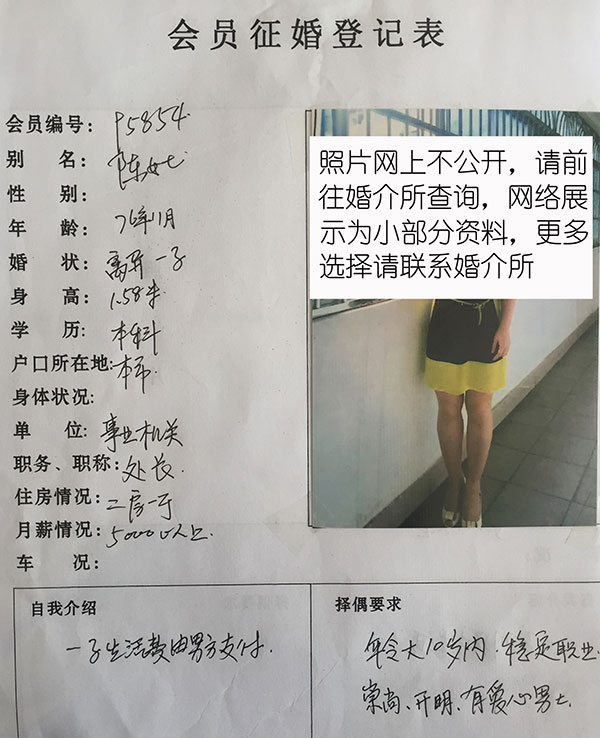 会员征婚登记表
会员编号: P5854
别 名: 陈女士
性 别:
年 龄: 76年1月
婚 状: 离异一子
身 高: 1.58米
学 历: 本科
户口所在地: 本市
身体状况:
单 位: 事业机关
职务、职称: 处长.
住房情况: 二房一厅
月薪情况: 5000以上.
车 况:
照片网上不公开，请前
往婚介所查询，网络展
示为小部分资料，更多
选择请联系婚介所
自我介绍
一子生活费由男方支付.
择偶要求
年令大10岁内.稳定职业
崇尚、开明、有爱心男士.